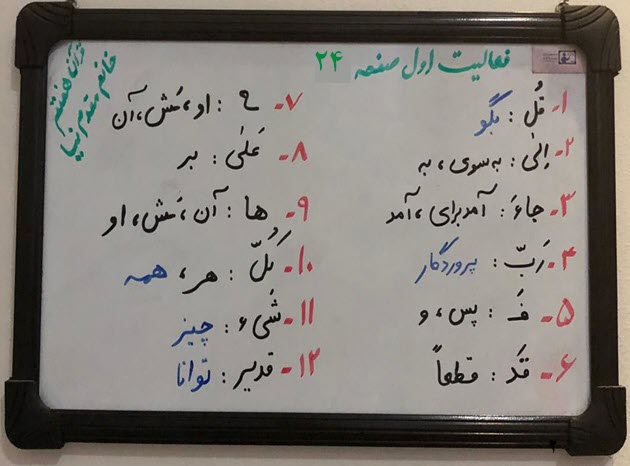 فعالیت اول صفحه ۲۴
قرآن هفتم
خانم مقدم نیا
۱- قُل : بگو
۲- اِلیٰ : به سوی ، به
۳- جاءَ : آمد برای ، آمد
۴- رَبّ : پروردگار
۵- فَ : پس ، و
۶- قَد : قطعاً
۷- ه : او ، ـَش ، آن
۸- عَلیٰ : بر
۹- ها : آن ، ـَش ، او
۱۰- کُلّ : هر ، همه
۱۱- شَیء : چیز
۱۲- قدیر : توانا